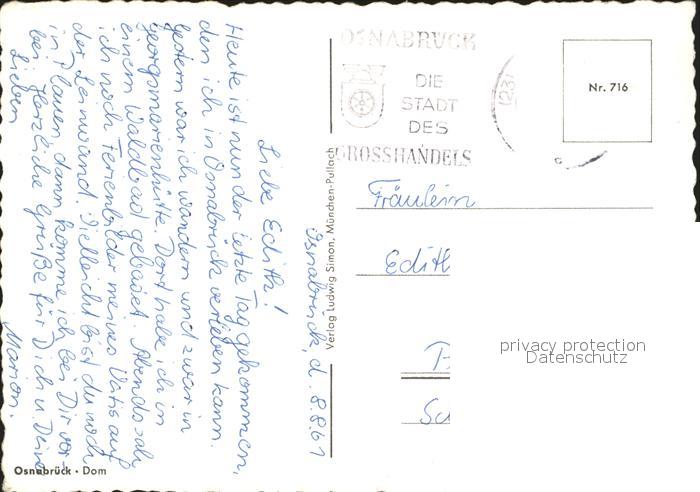 Osnabrück, d. 8.8.61
Liebe Edith!
Heute ist nun der letzte Tag gekommen,
den ich in Osnabrück verleben kann.
Gestern war ich wandern und zwar in
Georgsmarienhütte. Dort habe ich in
einem Waldbad gebadet. Abends sah
ich noch Ferienbilder meines Vatis auf
der Leinwand. Vielleicht bist du noch
in Plauen, dann komme ich bei Dir vor-
bei. Herzliche Grüße für Dich u. Deine
Lieben
Marion.
Osnabrück · Dom
Verlag Ludwig Simon, München-Pullach
OSNABRÜCK
DIE
STADT
DES
GROSSHANDELS
Nr. 716
Fräulein
Edith
privacy protection
Datenschutz